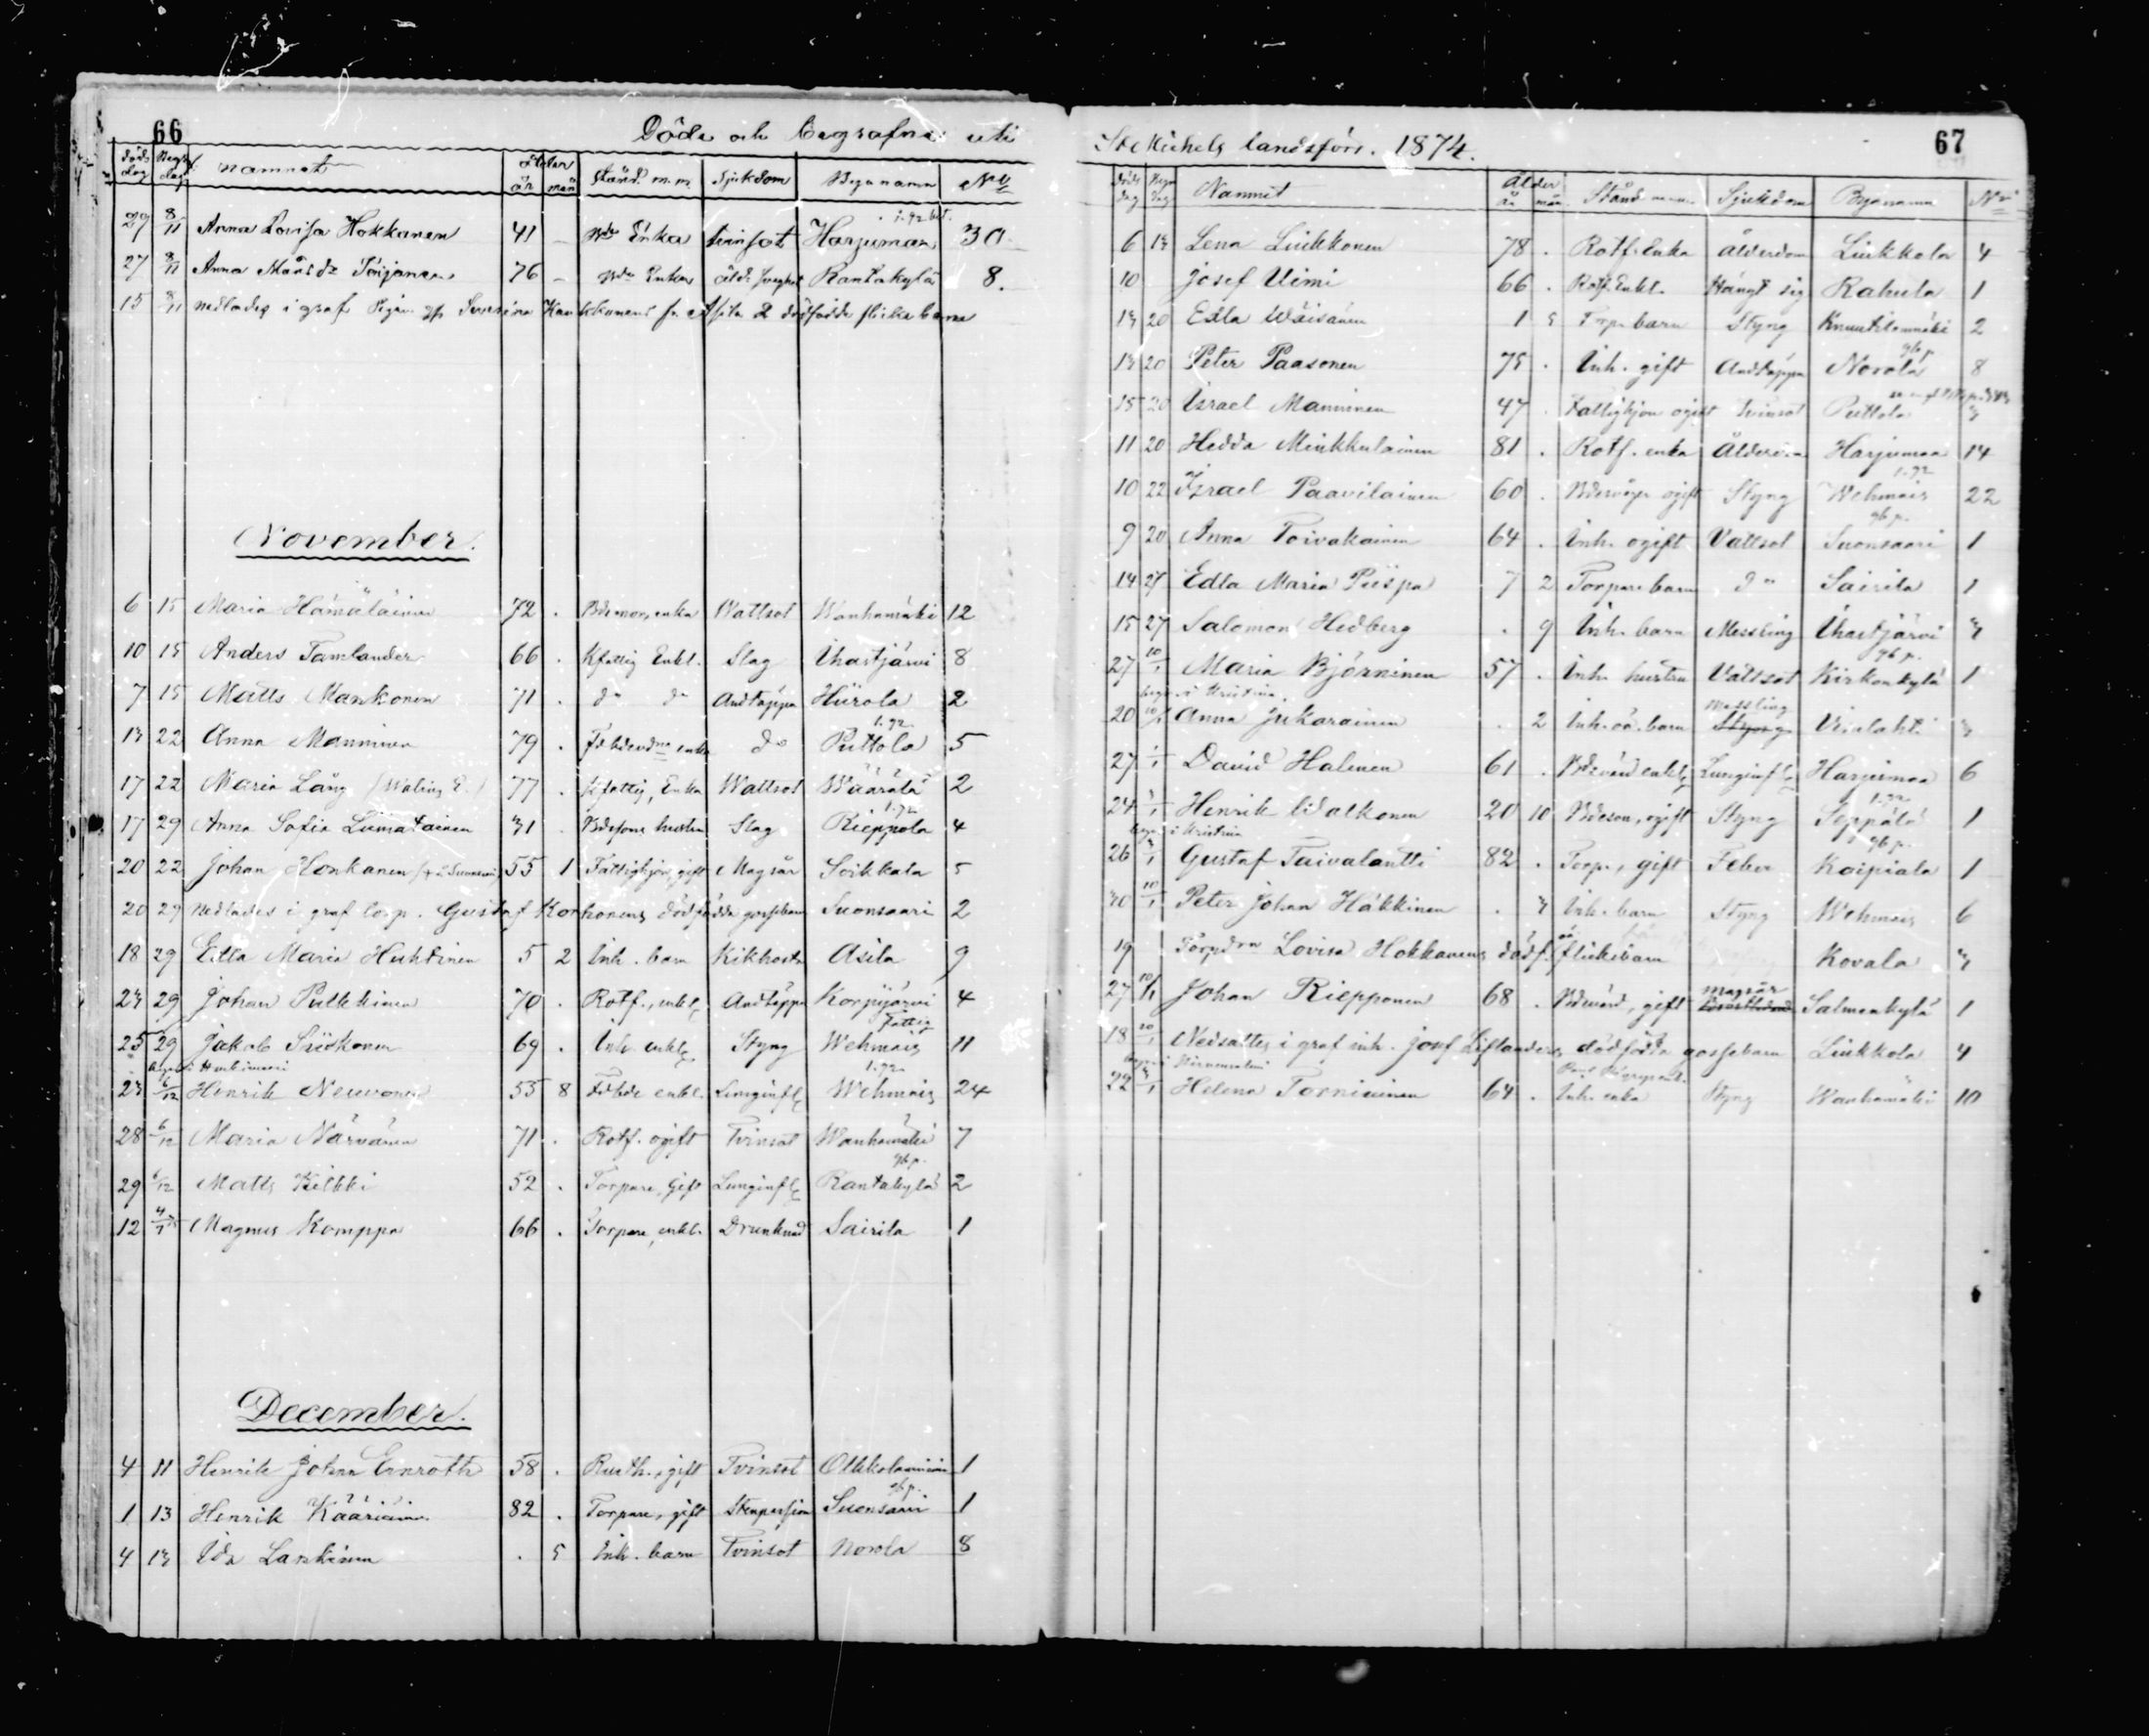 66
Döde och begrafne uti
Döds dag Begr. dag Namnet Ålder år mån Stånd m.m. Sjukdom Byanamn No
1.92 bet.
29 8/11 Anna Lovisa Hokkanen 41 - Bde Enka Tvinsot Harjumaa 30
27 8/11 Anna Matsdr 76 - Bde Enka Rantakylä 8.
15 8/11 nedlades i graf 2 dödfödda flickebarn
November.
6 15 Maria Hämäläinen 72 . enka Wattsot Wanhamäki 12
10 15 Anders Tamlander 66 . Kfattig Enkl. Slag Ihastjärvi 8
7 15 Matts Mankonen 71 . do do Andtäppa Hiirola 2
1.92
13 22 Anna Manninen 79 . enka do Puttola 5
17 22 Maria Lång 77 . Kfattig, Enka Wattsot Väärälä 2
1.92
17 29 Anna Sofia Liimatainen 31 . hustru Slag Rieppola 4
20 22 Johan Honkanen 55 1 Fattighjon, gift Magsår Soikkala 5
20 29 Nedlades i graf Gustaf Korhonens dödfödda gossebarn Suonsaari 2
18 29 Edla Maria Huhtinen 5 2 Inh. barn Kikhosta Asila 9
23 29 Johan Pulkkinen 70 . Rotf., enkl. Andtäppa Korpijärvi 4
Fattig
25 29 Jakob Siiskonen 69 . Inh. enkl. Styng Wehmais 11
1.92
23 6/12 Henrik Neuvonen 55 8 enkl. Lunginfl. Wehmais 24
28 6/12 Maria Närvänen 71 . Rotf. ogift Tvinsot Wanhamäki 7
gb p.
29 6/12 Matts Kilkki 52 . Torpare, Gift Lunginfl. Rantakylä 2
12 4/1 Magnus Komppa 66 . Torpare, enkl. Drunknad Sairila 1
December.
4 11 Henrik Johan Ernroth 58 . Rusth., gift Tvinsot 1
gb p.
1 13 Henrik Kääriäinen 82 . Torpare, gift Stenpassion Suonsaari 1
4 13 Ida Lankinen . 5 Inh. barn Tvinsot Norola 8
67
St Michels landsförs. 1874.
Döds dag Begr dag Namnet Ålder år mån Stånd m.m. Sjukdom Byanamn No
6 13 Lena Liukkonen 78 . Rotf. Enka Ålderdom Liukkola 4
10 Josef Uimi 66 . Rotf. Enkl. Hängt sig Rahula 1
13 20 Edla Wäisänen 1 5 Torp. barn Styng Knuutilanmäki 2
gb p.
13 20 Peter Paasonen 75 . Inh. gift Andtäppa Norola 8
15 20 Israel Manninen 47 . Fattighjon ogift Tvinsot Puttola 3
11 20 Hedda Miukkulainen 81 . Rotf. enka Ålderdom Harjumaa 14
1.92
10 22 Israel Paavilainen 60 . ogift Styng Wehmais 22
gb p.
9 20 Anna Toivakainen 64 . Inh. ogift Vattsot Suonsaari 1
14 27 Edla Maria Piispa 7 2 Torpare barn do Sairila 1
15 27 Salomon Hedberg . 9 Inh. barn Messling Ihastjärvi 3
gb p.
27 10/1 Maria Björninen 57 . Inh. hustru Vattsot Kirkonkylä 1
begr. i Kristina
Messling
20 10/1 Anna Jukarainen . 2 Inh. oä. barn Styng Visulahti 3
27 1/1 David Halinen 61 . enkl. Lunginfl. Harjumaa 6
1.92
24 3/1 Henrik Walkonen 20 10 Bdeson, ogift Styng Seppälä 1
begr. i Kristina
gb p.
26 3/1 Gustaf Taivalantti 82 . Torp., gift Feber Koipiala 1
30 10/1 Peter Johan Häkkinen . 3 Inh. barn Styng Wehmais 6
19 Torpdrn Lovisa Hokkanens dödf. oä flickebarn Kovala 3
Magsår
27 10/1 Johan Riepponen 68 . gift Salmenkylä 1
18 10/1 Nedsattes i graf inh. Josef Liflanders dödfödda gossebarn Liukkola 4
22 3/1 Helena Torniainen 64 . Inh. enka Styng Wanhamäki 10